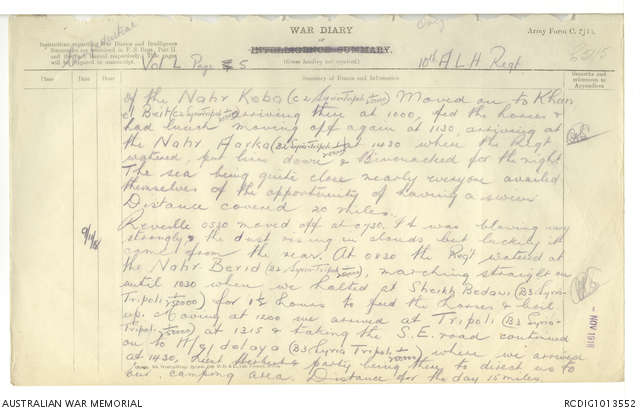 Confidential
WAR DIARY
or
INTELLIGENCE SUMMARY.
(Erase heading not required).
Army Form C. 2118.
Instructions regarding War Diaries and Intelligence
Summaries are contained in F. S. Regs., Part II.
and the Staff Manual respectively. Title pages
will be prepared in manuscript.
Vol L Page 5
10th A L H Regt
Place
Date
Hour
Summary of Events and Information
Remarks and
references to
Appendices
of the Nahr Koba (C2 Syria Tripoli) Moved on to Khan
el Breit (C2 Syria Tripoli) arriving there at 1000, fed the horses &
had lunch moving off again at 1130, arriving at
the Nahr Aarka (B2 Syria Tripoli) at 1430 where the Regt
watered, put lines down & Bivouached for the night
The sea being quite close nearly everyone availed
themselves of the opportunity of having a swim
Distance covered 20 miles.
9/11/18
Reveille 0530 moved off at 0730. It was blowing very
strongly & the dust rising in clouds but luckily it
came from the rear. At 0830 the Regt watered at
the Nahr Berid (B2 Syria Tripoli), marching straight on
until 1030 when we halted at Sheikh Bedawi (B3 Syria
Tripoli) for 1½ hours to feed the horses & boil
up. Moving at 1200 we arrived at Tripoli (B3 Syria
Tripoli) at 1315 & taking the S.E. road continued
on to (B3 Syria Tripoli) where we arrived
at 1430, Lieut party being there to direct us to
our camping area. Distance for the day 15 miles.
- NOV 1918
AUSTRALIAN WAR MEMORIAL
RCDIG1013552